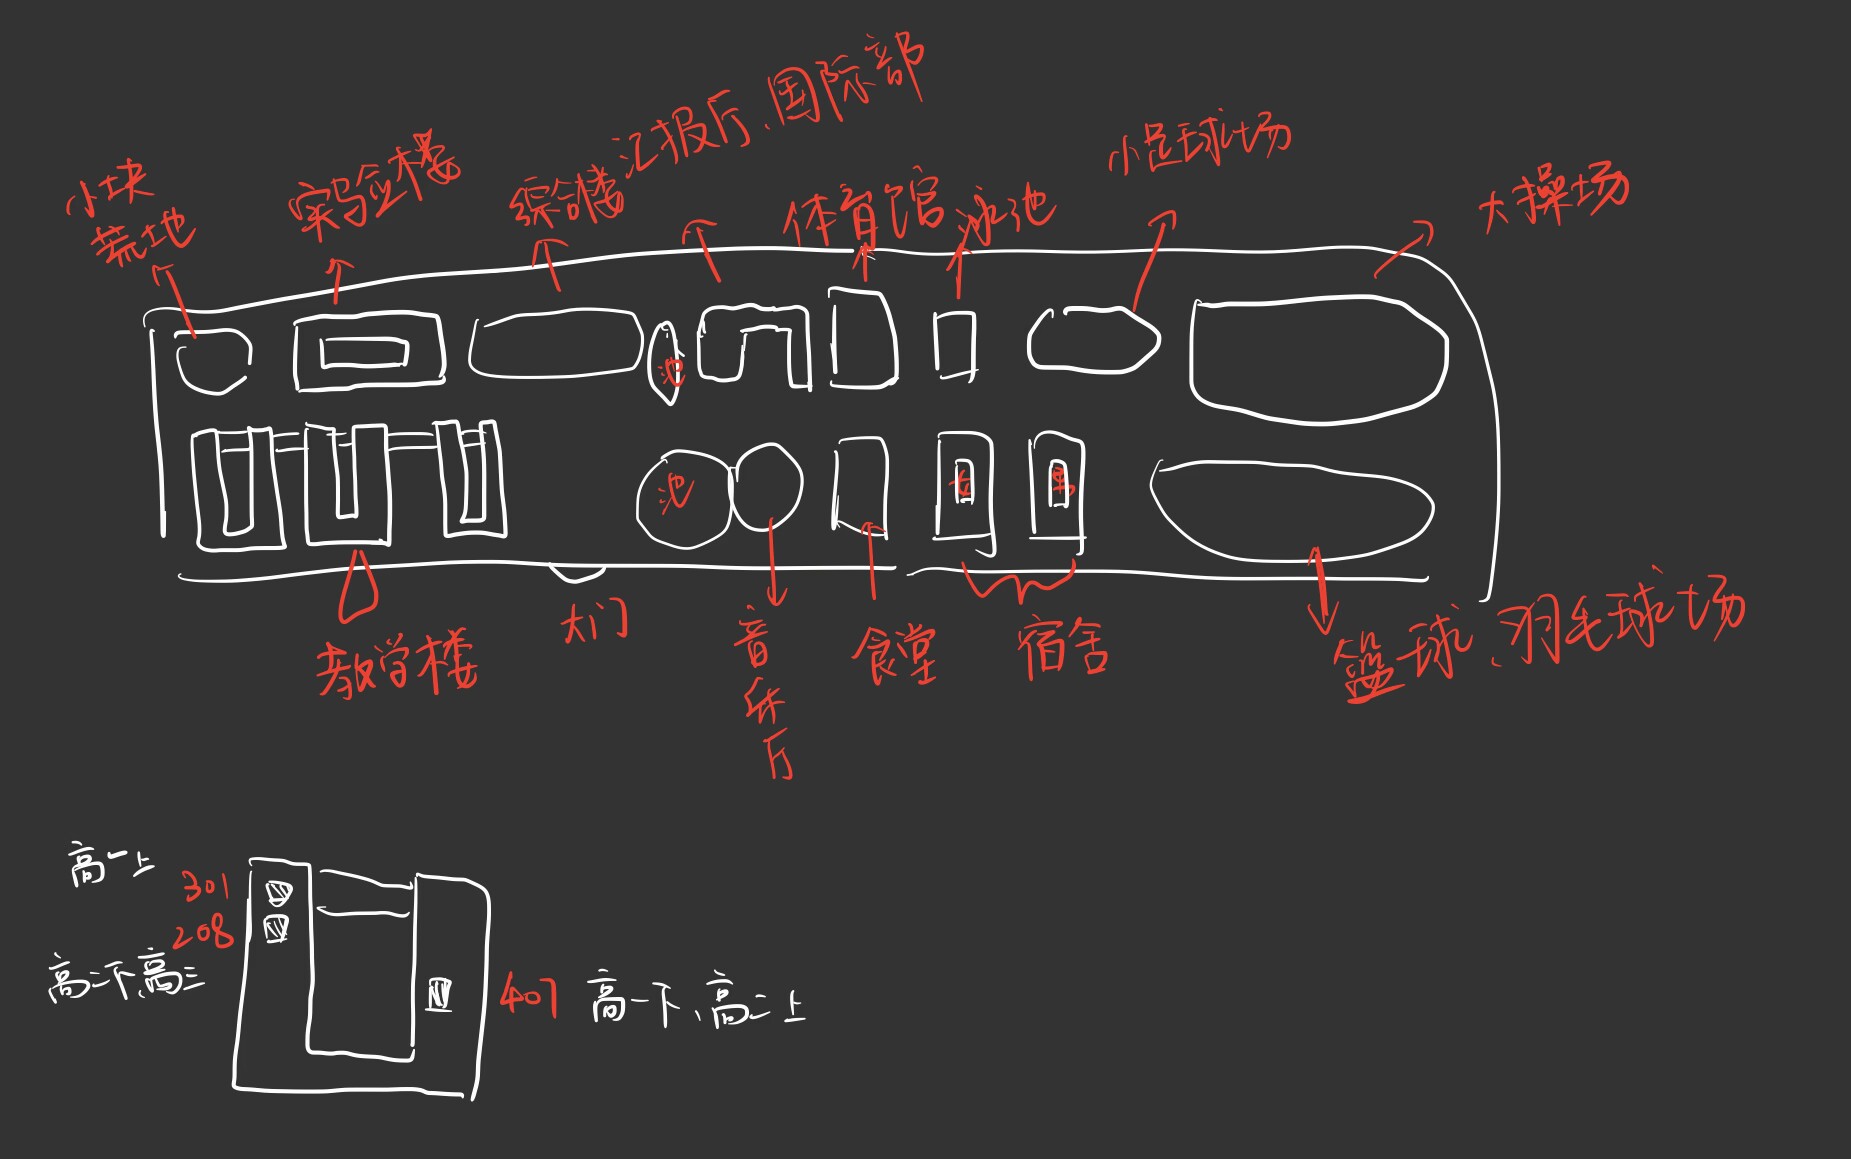 小块
荒地
实验楼
综合楼
汇报厅、国际部
体育馆
泳池
小足球场
大操场
池
池
女
男
教学楼
大门
音乐厅
食堂
宿舍
篮球、羽毛球场
高一上
301
208
高二下、高三
407
高一下、高二上